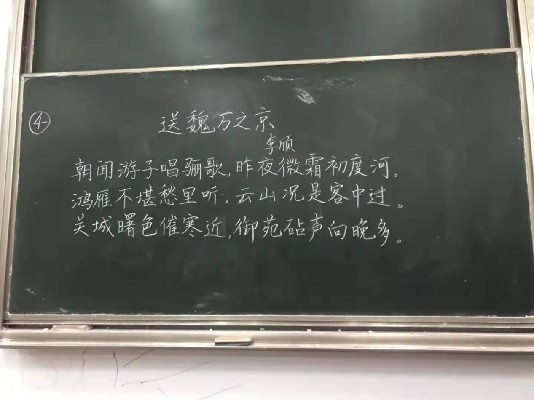 ④
送魏万之京
李颀
朝闻游子唱骊歌,昨夜微霜初度河。
鸿雁不堪愁里听,云山况是客中过。
关城曙色催寒近,御苑砧声向晚多。